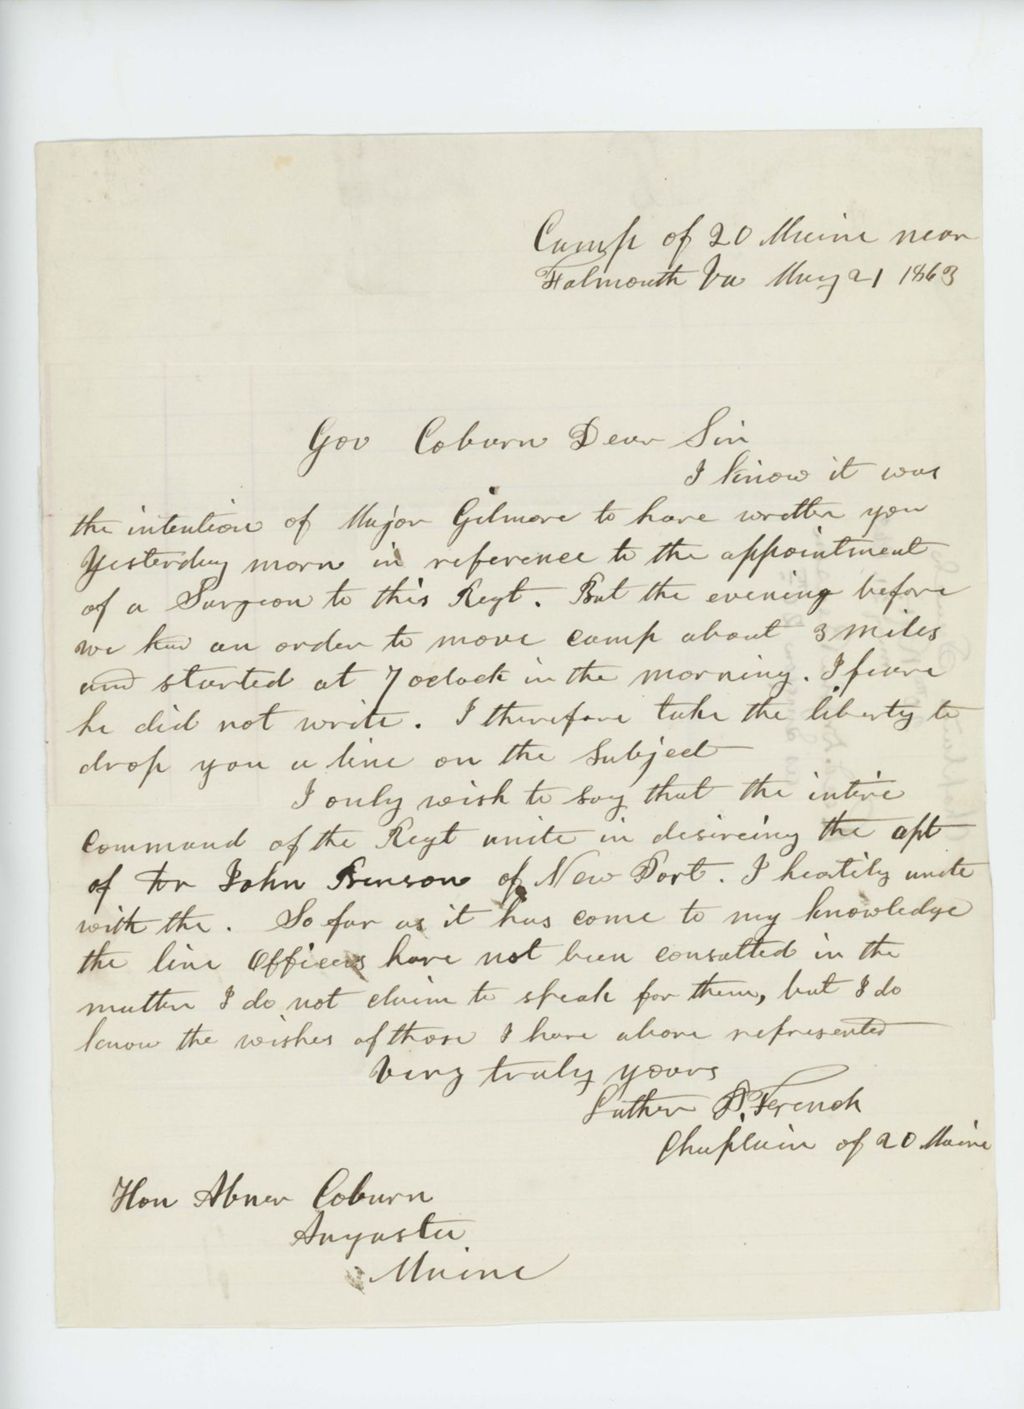 Camp of 20 Maine near
Falmouth Va May 21 1863
Gov Coburn Dear Sir
I know it was
the intention of Major Gilmore to have written you
Yesterday morn in reference to the appointment
of a Surgeon to this Regt. But the evening before
we had an order to move camp about 3 miles
and started at 7 oclock in the morning. I feare
he did not write. I therefore take the liberty to
drop you a line on the Subject
I only wish to say that the intire
command of the Regt unite in desireing the apt
of Dr John Benson of New Port. I heartily unite
with the. So far as it has come to my knowledge
the line Officers have not been consulted in the
matter I do not claim to speak for them, but I do
know the wishes of those I have above represented
Very truly yours
Luther P. French
Chaplain of 20 Maine
Hon Abner Coburn
Augusta
Maine